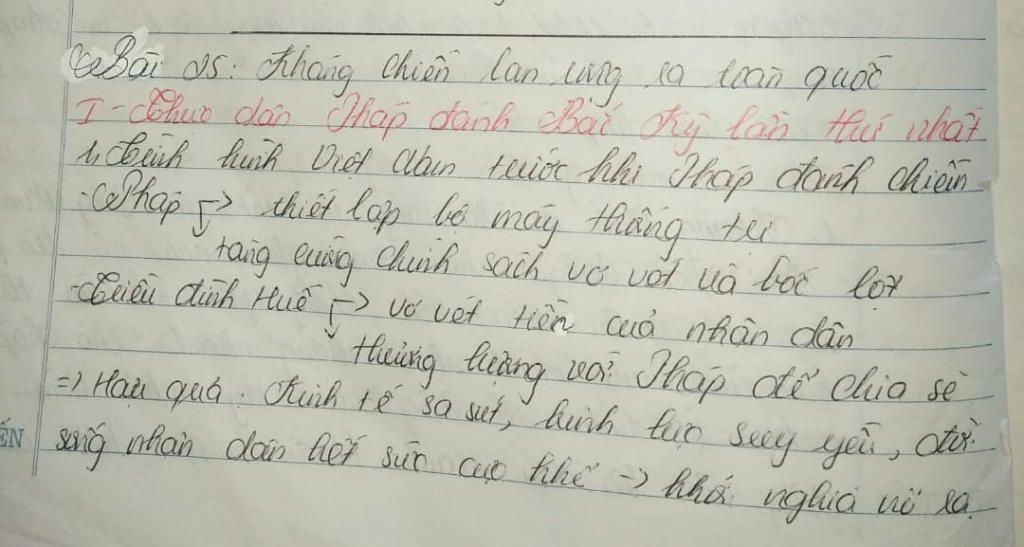 Bài 25: Kháng chiến lan rộng ra toàn quốc
I - Thực dân Pháp đánh Bắc Kỳ lần thứ nhất
1, Tình hình Việt Nam trước khi Pháp đánh chiến
- Pháp -> thiết lập bộ máy thống trị
tăng cường chính sách vơ vét và bóc lột
- Triều đình Huế -> vơ vét tiền của nhân dân
thương lượng với Pháp để chia sẻ
=> Hậu quả: Kinh tế sa sút, binh lực suy yếu, đời
sống nhân dân hết sức cực khổ -> khởi nghĩa nổ ra
ẾN